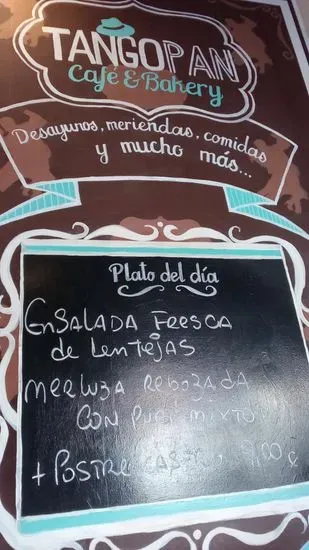 TANGOPAN
Café & Bakery
Desayunos, meriendas, comidas
y mucho más...
Plato del día
EnSALADA FRESCA
de LenTEJAS
MERLUZA REBOZADA
CON PURÉ MIXTO
+ POSTRE CASERO